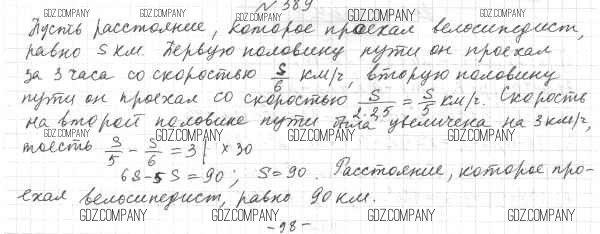 № 389
GDZ.COMPANY GDZ.COMPANY GDZ.COMPANY GDZ.COMPANY
Пусть расстояние, которое проехал велосипедист,
равно S км. Первую половину пути он проехал
за 3 часа со скоростью S/6 км/ч, вторую половину
пути он проехал со скоростью S/(2·2,5) = S/5 км/ч. Скорость
на второй половине пути была увеличена на 3 км/ч,
GDZ.COMPANY GDZ.COMPANY GDZ.COMPANY GDZ.COMPANY
тоесть S/5 - S/6 = 3 | × 30
6S-5S = 90; S=90. Расстояние, которое про-
ехал велосипедист, равно 90 км.
GDZ.COMPANY GDZ.COMPANY GDZ.COMPANY GDZ.COMPANY
-98-